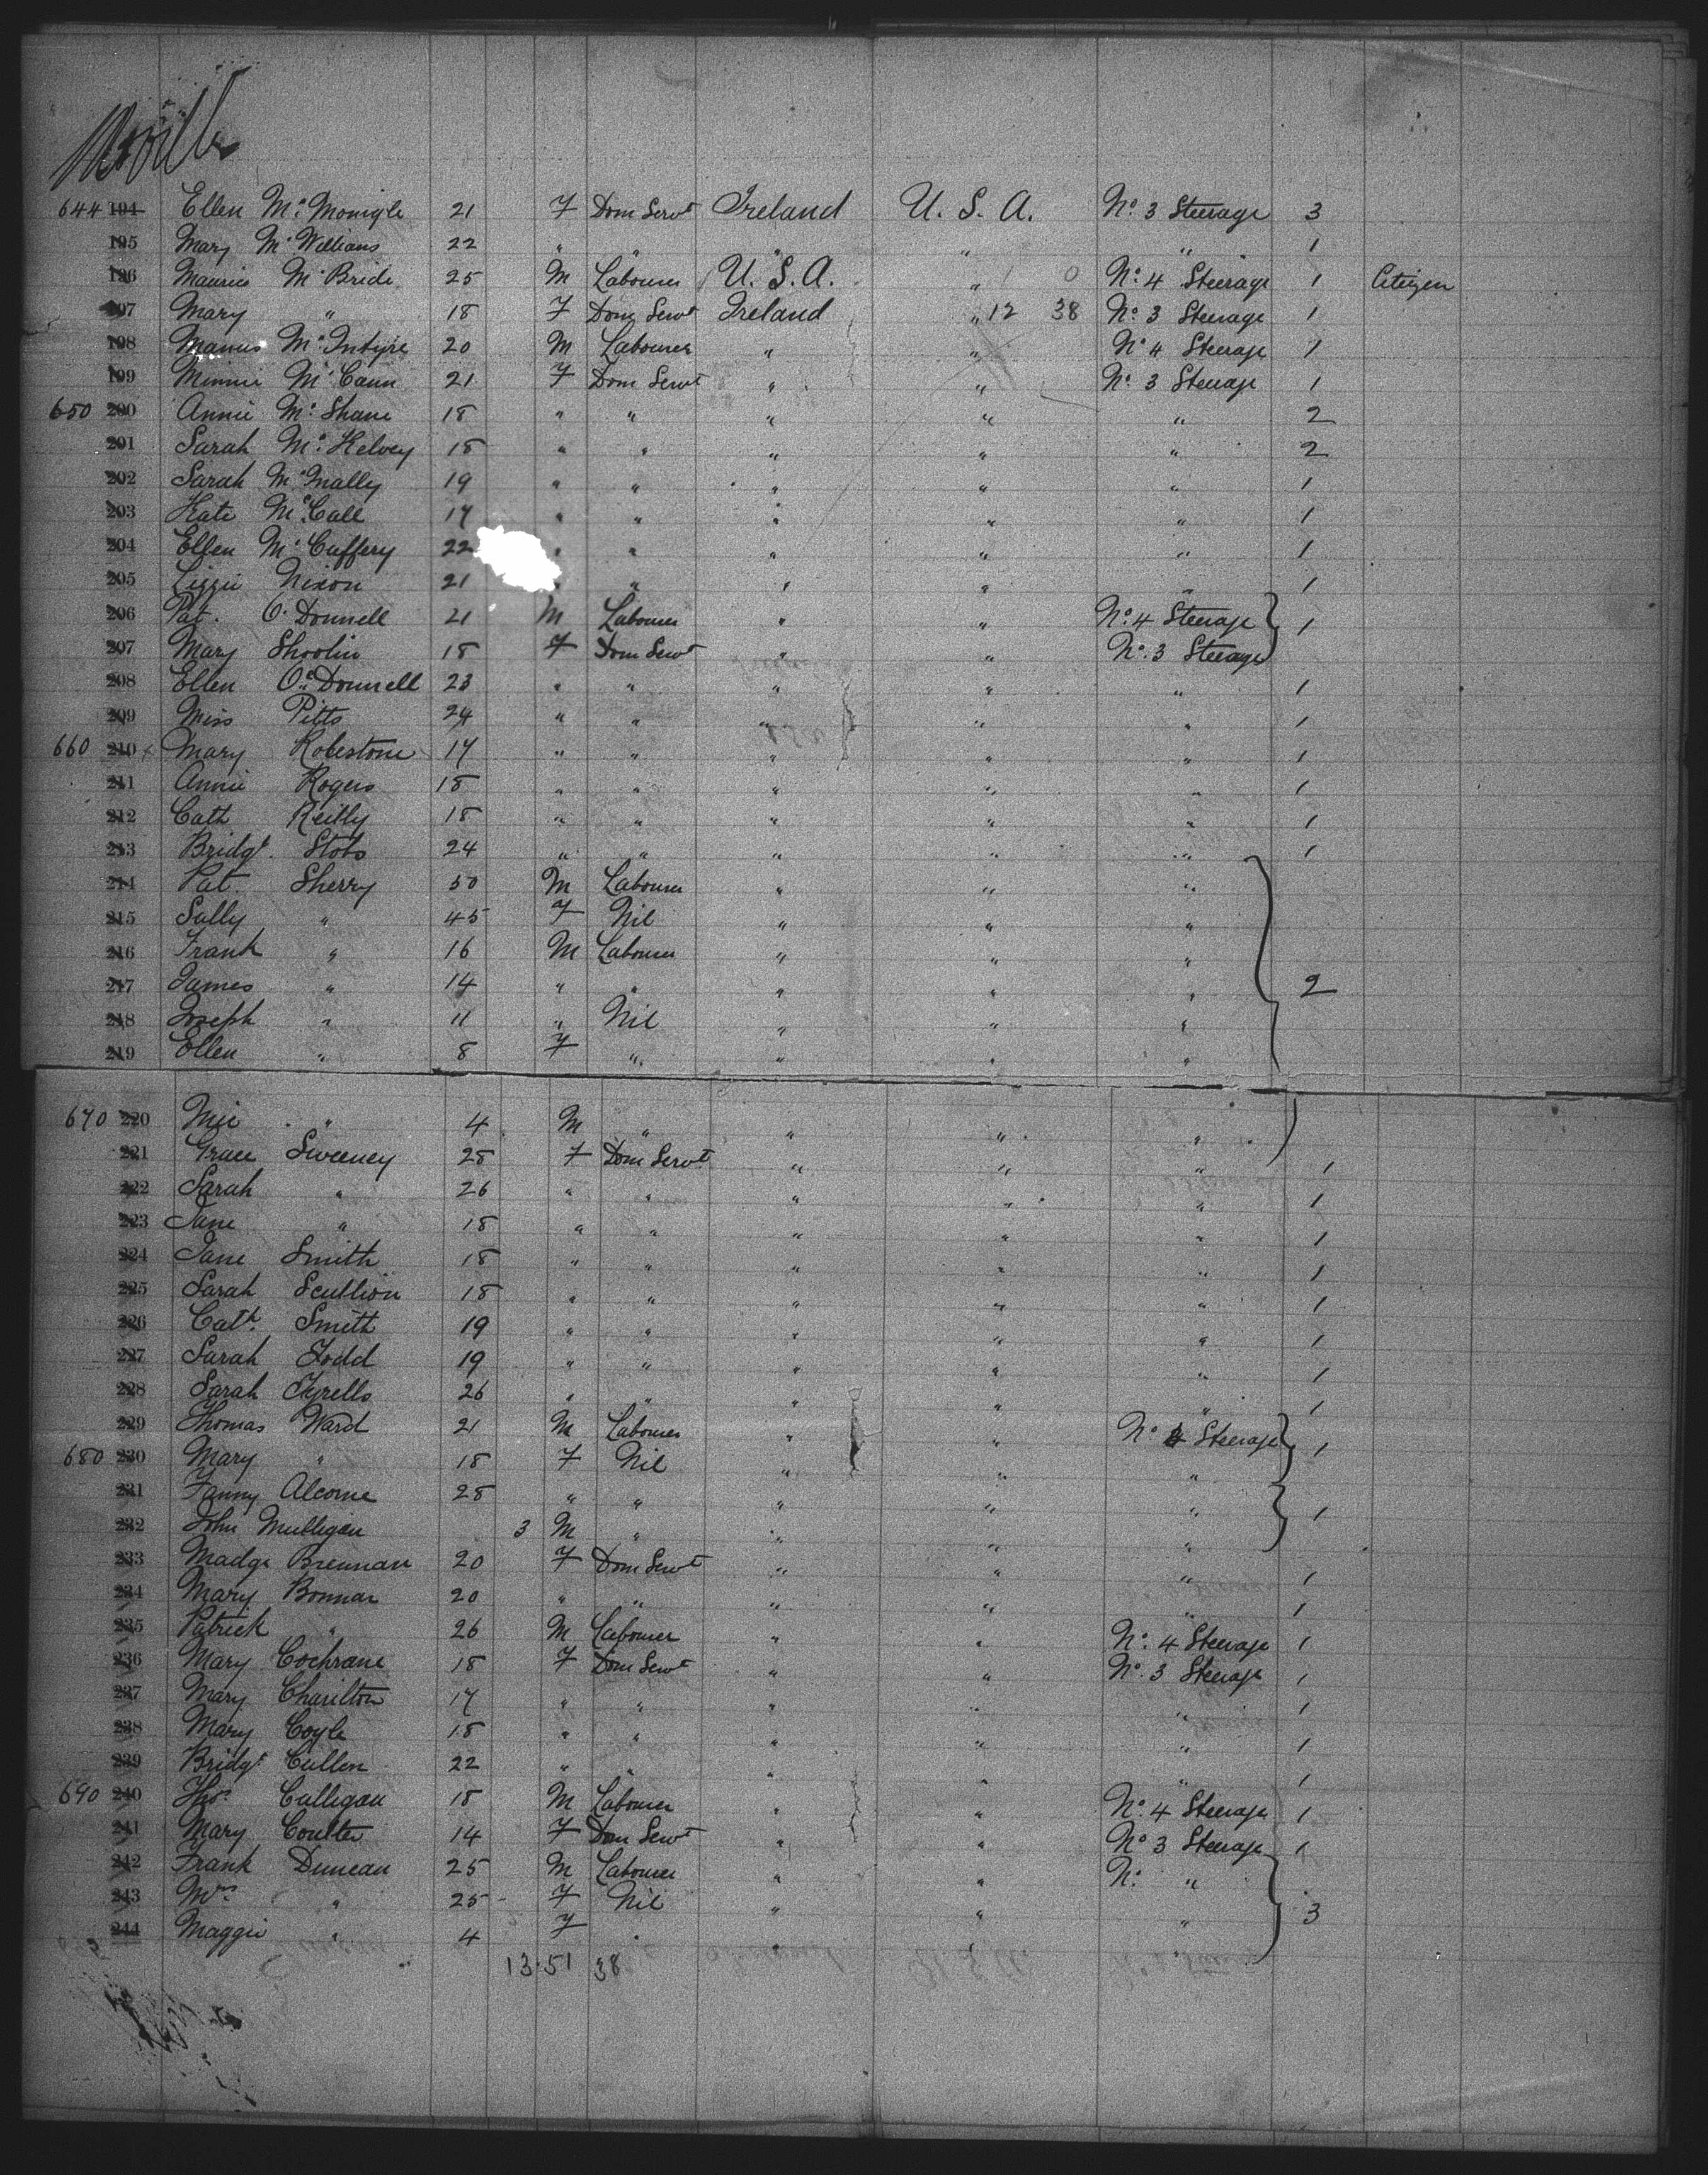 Moville
644 194 Ellen Mc Monigle 21 F Dom Servt Ireland U. S. A. No. 3 Steerage 3
195 Mary Mc Williams 22 " " " " " 1
196 Maurice Mc Bride 25 M Labourer U. S. A. " 0 No. 4 Steerage 1 Citizen
197 Mary " 18 F Dom Servt Ireland " 12 38 No. 3 Steerage 1
198 Manus Mc Intyre 20 M Labourer " " No 4 Steerage 1
199 Minnie Mc Cann 21 F Dom Servt " " No. 3 Steerage 1
650 200 Annie Mc Shane 18 " " " " " 2
201 Sarah Mc Kelvey 18 " " " " " 2
202 Sarah Mc Nally 19 " " " " " 1
203 Kate Mc Call 17 " " " " " 1
204 Ellen Mc Caffery 22 " " " " " 1
205 Lizzie Nixon 21 " " " " " 1
206 Pat. O. Donnell 21 M Labourer " " No. 4 Steerage 1
207 Mary Shoolin 18 F Dom Servt " " No. 3 Steerage
208 Ellen O. Donnell 23 " " " " " 1
209 Miss Pitts 24 " " " " " 1
660 210 Mary Robestone 17 " " " " " 1
211 Annie Rogers 18 " " " " " 1
212 Cath Reilly 18 " " " " " 1
213 Bridgt. Stobs 24 " " " " " 1
214 Pat. Sherry 50 M Labourer " " "
215 Sally " 45 F Nil " " "
216 Frank " 16 M Labourer " " "
217 James " 14 " " " " " 2
218 Joseph " 11 " Nil " " "
219 Ellen " 8 F " " " "
670 220 Mic " 4 M " " " "
221 Grace Sweeney 28 F Dom Servt " " " 1
222 Sarah " 26 " " " " " 1
223 Jane " 18 " " " " " 1
224 Jane Smith 18 " " " " " 1
225 Sarah Scullion 18 " " " " " 1
226 Cath. Smith 19 " " " " " 1
227 Sarah Todd 19 " " " " " 1
228 Sarah Tyrells 26 " " " " " 1
229 Thomas Ward 21 M Labourer " " No 4 Steerage 1
680 230 Mary " 18 F Nil " " "
231 Fanny Alcorne 28 " " " " " 1
232 John Mulligan 3 M " " " "
233 Madge Brennan 20 F Dom Servt " " " 1
234 Mary Bonnar 20 " " " " " 1
235 Patrick " 26 M Labourer " " No. 4 Steerage 1
236 Mary Cochrane 18 F Dom Servt " " No. 3 Steerage 1
237 Mary Charilton 17 " " " " " 1
238 Mary Coyle 18 " " " " " 1
239 Bridgt Cullen 22 " " " " " 1
690 240 Thos. Culligan 18 M Labourer " " No. 4 Steerage 1
241 Mary Coulter 14 F Dom Servt " " No 3 Steerage 1
242 Frank Duncan 25 M Labourer " " No. "
243 Mrs. " 25 F Nil " " " 3
244 Maggie " 4 F " "
13.51 38